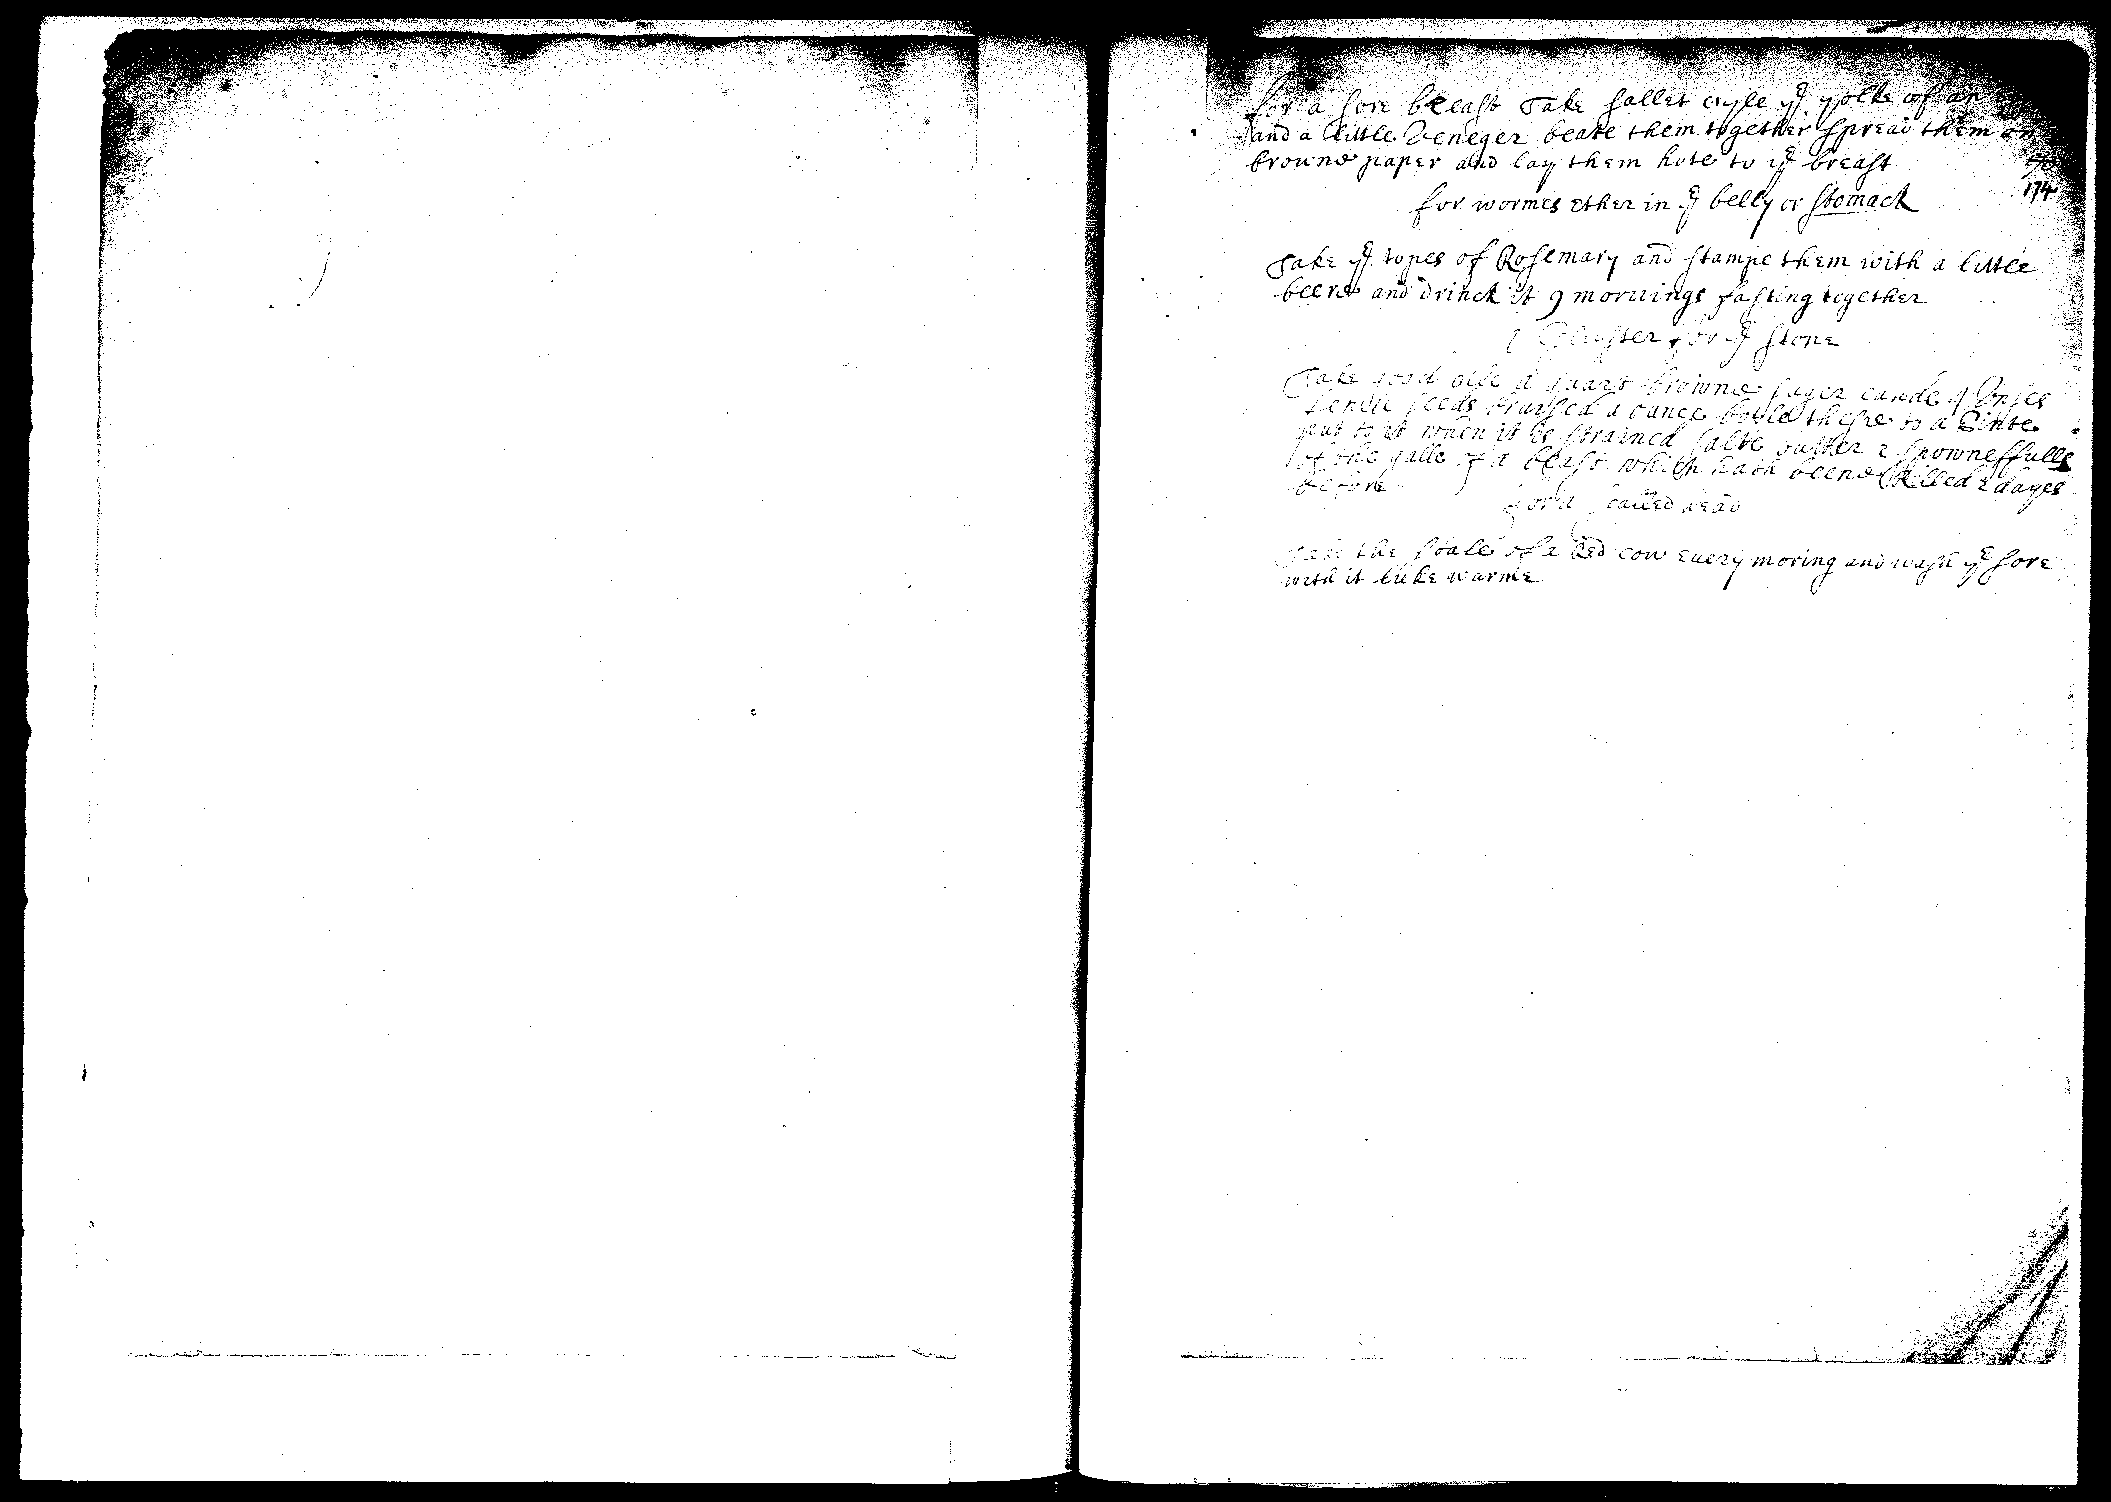 for a sore breast Take sallet oyle ye yolke of an
and a little Veneger beate them together spread them on
browne paper and lay them hote to ye breast
174
for wormes ether in ye belly or stomack
Take ye topes of Rosemary and stampe them with a little
beere and drinck it 9 mornings fasting together
Glister for ye stone
Take good a quart browne suger cande 4
seeds brused a ounce boyle these to a Pinte
put to it when it is strained salte 2 spownesfulle
of the galle of a beast which hath beene killed 2 dayes
before
for a head
Take the stale of a Red cow every moring and wash ye sore
with it luke warme